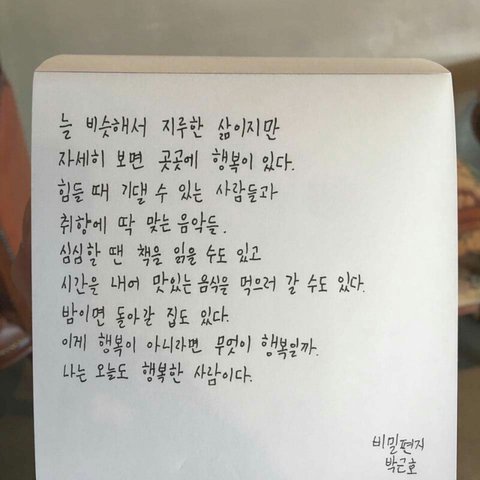 늘 비슷해서 지루한 삶이지만
자세히 보면 곳곳에 행복이 있다.
힘들 때 기댈 수 있는 사람들과
취향에 딱 맞는 음악들.
심심할 땐 책을 읽을 수도 있고
시간을 내어 맛있는 음식을 먹으러 갈 수도 있다.
밤이면 돌아갈 집도 있다.
이게 행복이 아니라면 무엇이 행복일까.
나는 오늘도 행복한 사람이다.
비밀편지
박근호